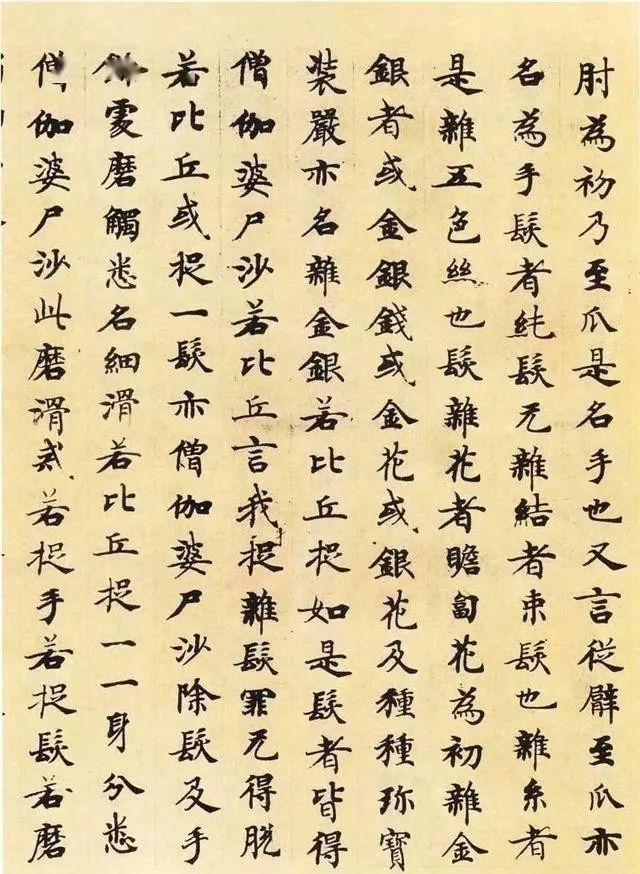 肘為初乃至爪是名手也又言従臂至爪亦
名為手髮者純髮无雜結者束髮也雜糸者
是雜五色絲也髮雜花者瞻匐花為初雜金
銀者或金銀錢或金花或銀花及種種珎寶
裝嚴亦名雜金銀若比丘捉如是髮者皆得
僧伽婆尸沙若比丘言我捉雜髮罪无得脫
若比丘或捉一髮亦僧伽婆尸沙除髮及手
餘處磨觸悉名細滑若比丘捉一一身分悉
僧伽婆尸沙此磨滑戒若捉手若捉髮若磨